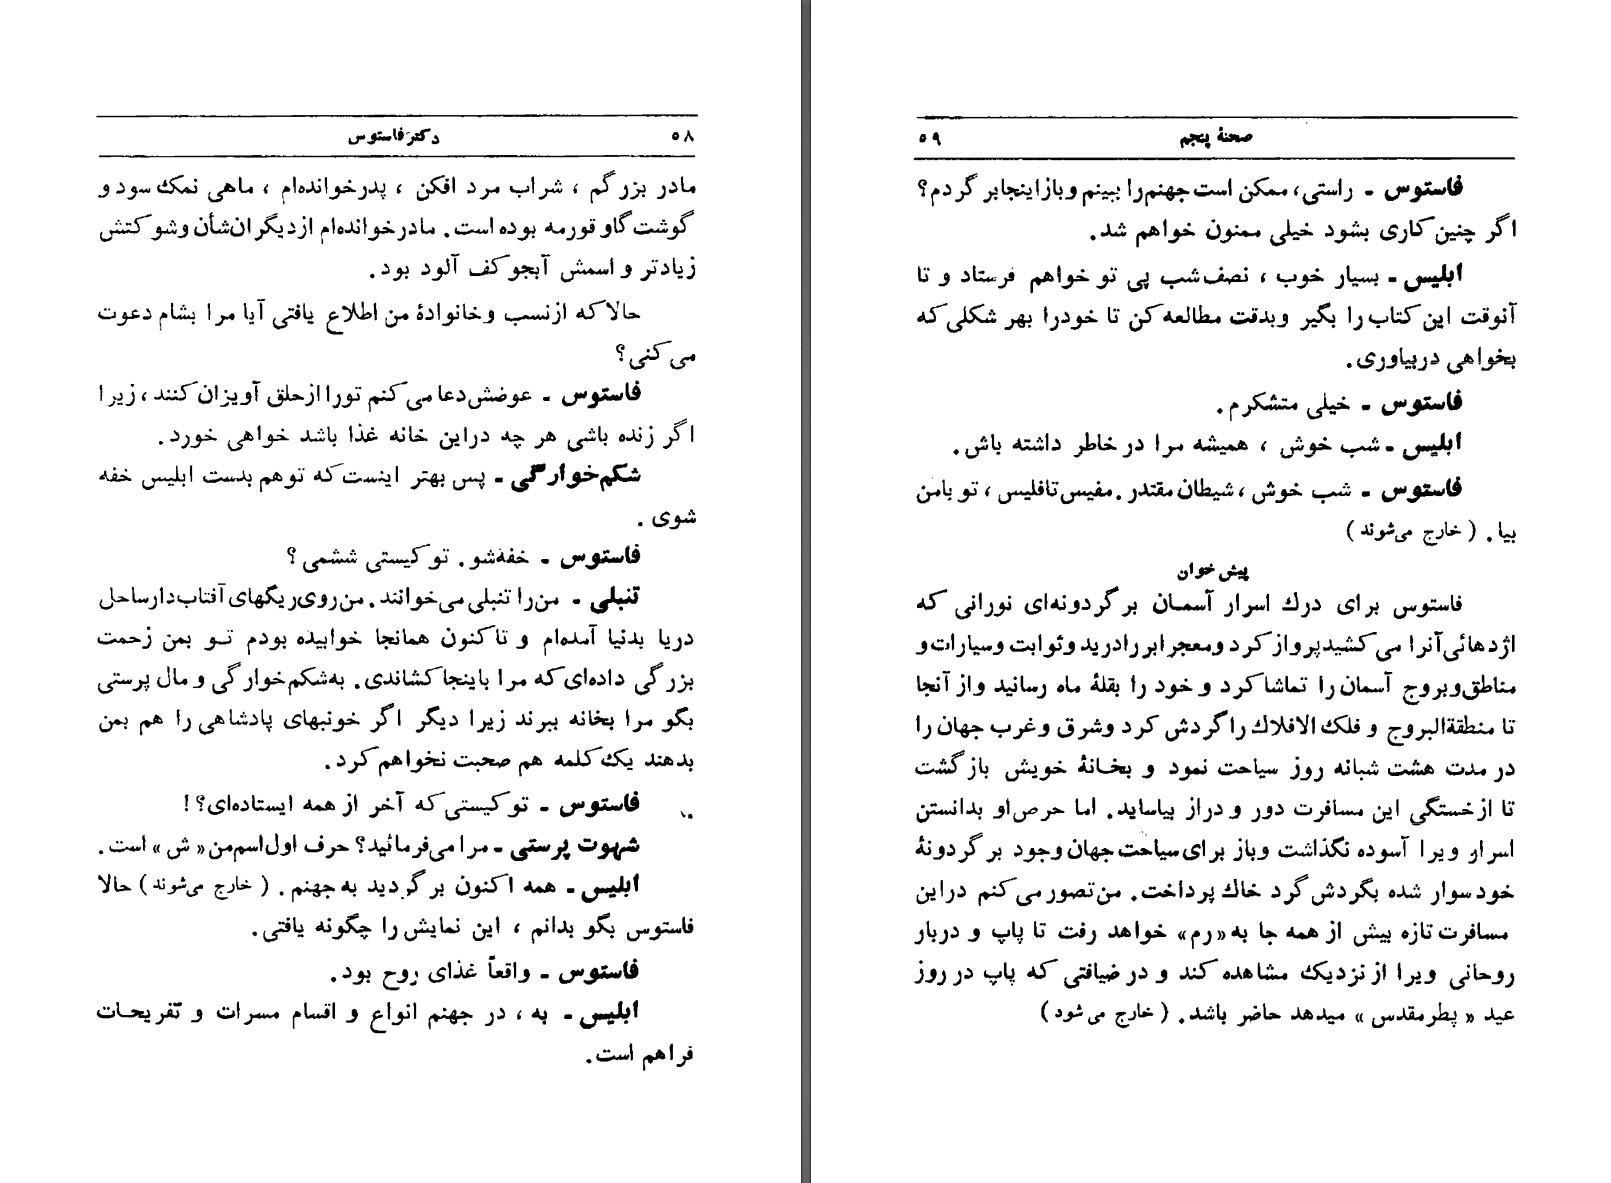 ۵۸ دکتر فاستوس
مادر بزرگم ، شراب مرد افکن ، پدرخوانده‌ام ، ماهی نمک سود و
گوشت گاو قورمه بوده است. مادرخوانده‌ام از دیگران شأن و شوکتش
زیادتر و اسمش آبجو کف آلود بود.
حالا که از نسب و خانوادهٔ من اطلاع یافتی آیا مرا بشام دعوت
می‌کنی؟
فاستوس ـ عوضش دعا می‌کنم تو را از حلق آویزان کنند ، زیرا
اگر زنده باشی هر چه در این خانه غذا باشد خواهی خورد.
شکم‌خوارگی ـ پس بهتر اینست که تو هم بدست ابلیس خفه
شوی .
فاستوس ـ خفه‌شو. تو کیستی ششمی ؟
تنبلی ـ من را تنبلی می‌خوانند. من روی ریگهای آفتاب‌دار ساحل
دریا بدنیا آمده‌ام و تاکنون همانجا خوابیده بودم تو بمن زحمت
بزرگی داده‌ای که مرا باینجا کشاندی. به‌شکم‌خوارگی و مال پرستی
بگو مرا بخانه ببرند زیرا دیگر اگر خونبهای پادشاهی را هم بمن
بدهند یک کلمه هم صحبت نخواهم کرد.
فاستوس ـ تو کیستی که آخر از همه ایستاده‌ای؟!
شهوت پرستی ـ مرا می‌فرمائید؟ حرف اول اسم من « ش » است.
ابلیس ـ همه اکنون برگردید به جهنم . ( خارج می‌شوند ) حالا
فاستوس بگو بدانم ، این نمایش را چگونه یافتی.
فاستوس ـ واقعاً غذای روح بود.
ابلیس ـ به ، در جهنم انواع و اقسام مسرات و تفریحات
فراهم است.
صحنهٔ پنجم ۵۹
فاستوس ـ راستی، ممکن است جهنم را ببینم و باز اینجا برگردم؟
اگر چنین کاری بشود خیلی ممنون خواهم شد.
ابلیس ـ بسیار خوب ، نصف‌شب پی تو خواهم فرستاد و تا
آنوقت این کتاب را بگیر و بدقت مطالعه کن تا خود را بهر شکلی که
بخواهی دربیاوری.
فاستوس ـ خیلی متشکرم .
ابلیس ـ شب خوش ، همیشه مرا در خاطر داشته باش.
فاستوس ـ شب خوش ، شیطان مقتدر. مفیس‌تافلیس ، تو با من
بیا. ( خارج می‌شوند )
پیش خوان
فاستوس برای درک اسرار آسمان بر گردونه‌ای نورانی که
اژدهائی آنرا می‌کشید پرواز کرد و معجر ابر را درید و ثوابت و سیارات و
مناطق و بروج آسمان را تماشا کرد و خود را بقلهٔ ماه رسانید و از آنجا
تا منطقة‌البروج و فلک الافلاک را گردش کرد و شرق و غرب جهان را
در مدت هشت شبانه روز سیاحت نمود و بخانهٔ خویش بازگشت
تا از خستگی این مسافرت دور و دراز بیاساید. اما حرص او بدانستن
اسرار ویرا آسوده نگذاشت و باز برای سیاحت جهان وجود بر گردونهٔ
خود سوار شده بگردش گرد خاک پرداخت. من تصور می‌کنم در این
مسافرت تازه بیش از همه جا به «رم» خواهد رفت تا پاپ و دربار
روحانی ویرا از نزدیک مشاهده کند و در ضیافتی که پاپ در روز
عید « پطر مقدس » میدهد حاضر باشد. ( خارج می شود )